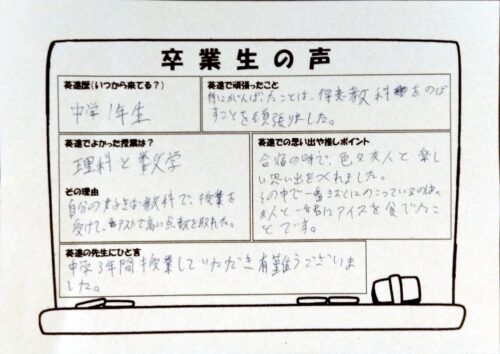 卒業生の声
英進歴(いつから来てる?)
中学1年生
英進で頑張ったこと
特にがんばったことは、得意教科をのば
すことを頑張りました。
英進でよかった授業は?
理科と数学
その理由
自分の好きな教科で、授業を
受けて、テストで高い点数を取れた。
英進での思い出や推しポイント
合宿の時で、色々友人と楽し
い思い出をつくれました。
その中で一番きおくにのこっているのは、
友人と一緒にアイスを食べたこ
とです。
英進の先生にひと言
中学3年間授業していただき有難うございま
した。